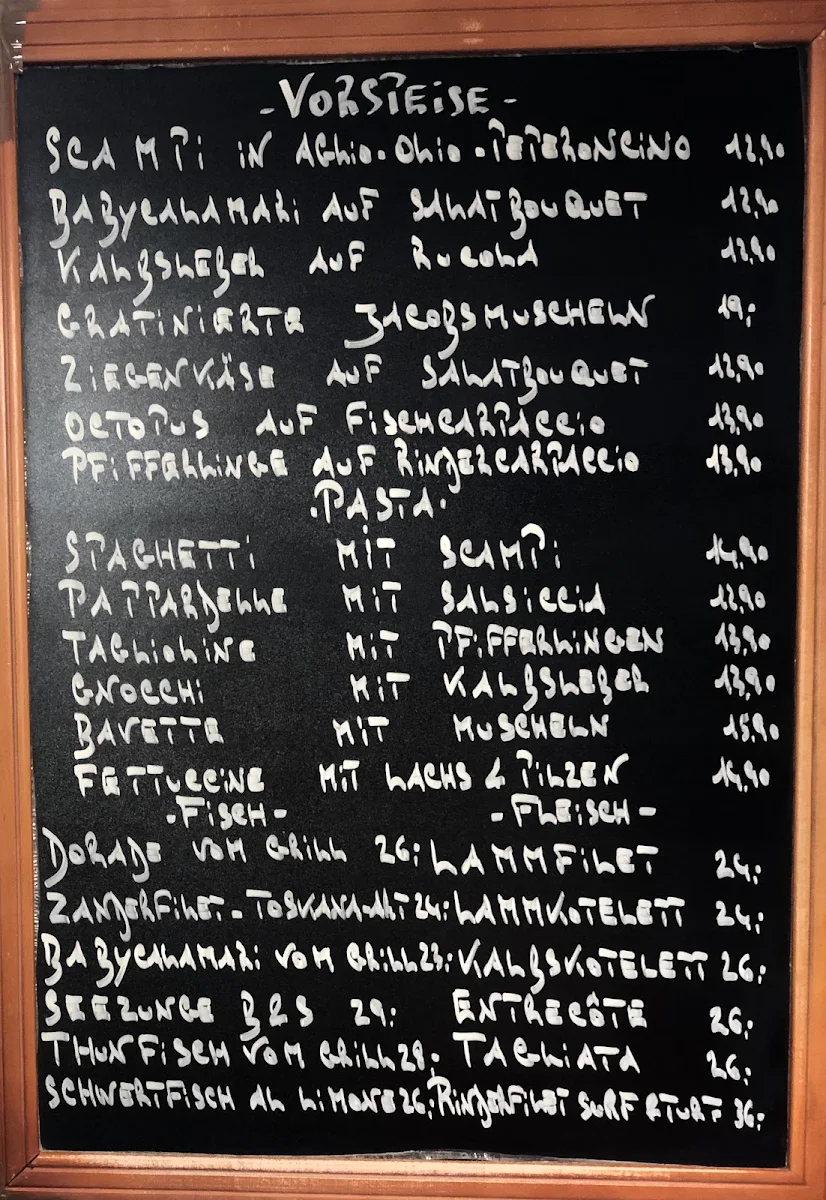 -VORSPEISE-
SCAMPI IN AGLIO-OLIO-PEPERONCINO 12,90
BABYCALAMARI AUF SALATBOUQUET 12,90
KALBSLEBER AUF RUCOLA 12,90
GRATINIERTE JACOBSMUSCHELN 19,-
ZIEGENKÄSE AUF SALATBOUQUET 12,90
OCTOPUS AUF FISCHCARPACCIO 13,90
PFIFFERLINGE AUF RINDERCARPACCIO 13,90
.PASTA.
SPAGHETTI MIT SCAMPI 14,90
PAPPARDELLE MIT SALSICCIA 12,90
TAGLIOLINE MIT PFIFFERLINGEN 13,90
GNOCCHI MIT KALBSLEBER 13,90
BAVETTE MIT MUSCHELN 15,90
FETTUCCINE MIT LACHS & PILZEN 14,90
-FISCH- -FLEISCH-
DORADE VOM GRILL 26,- LAMMFILET 24,-
ZANDERFILET-TOSKANA-ART 24,- LAMMKOTELETT 24,-
BABYCALAMARI VOM GRILL 23,- KALBSKOTELETT 26,-
SEEZUNGE B&S 29,- ENTRECÔTE 26,-
THUNFISCH VOM GRILL 28,- TAGLIATA 26,-
SCHWERTFISCH AL LIMONE 26,- RINDERFILET SURF &TURF 36,-